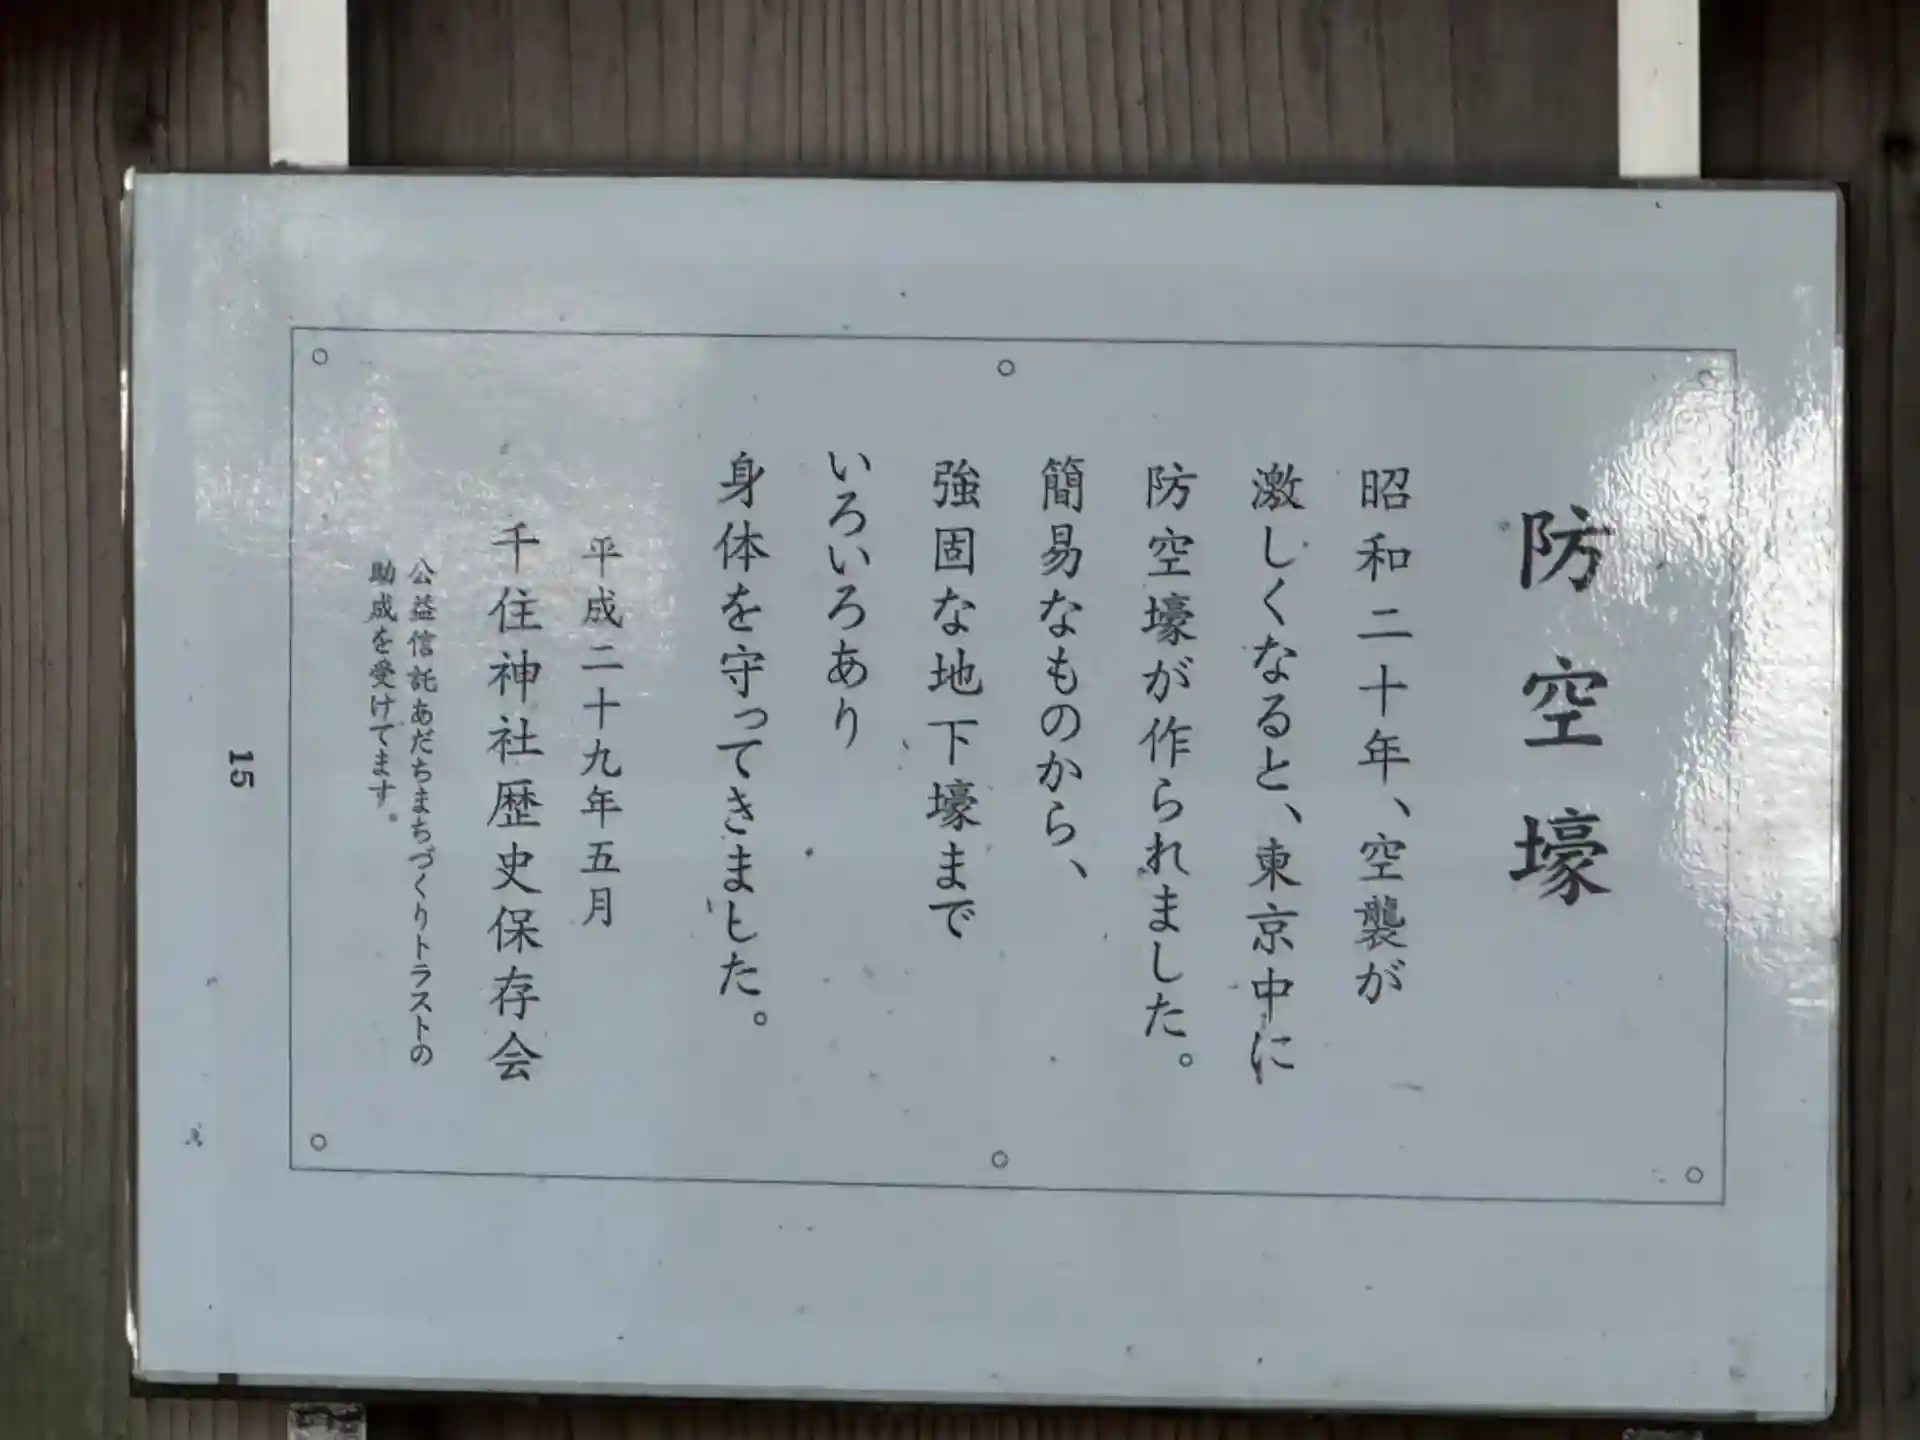 防空壕
昭和二十年、空襲が
激しくなると、東京中に
防空壕が作られました。
簡易なものから、
強固な地下壕まで
いろいろあり
身体を守ってきました。
平成二十九年五月
千住神社歴史保存会
公益信託あだちまちづくりトラストの
助成を受けてます。
15